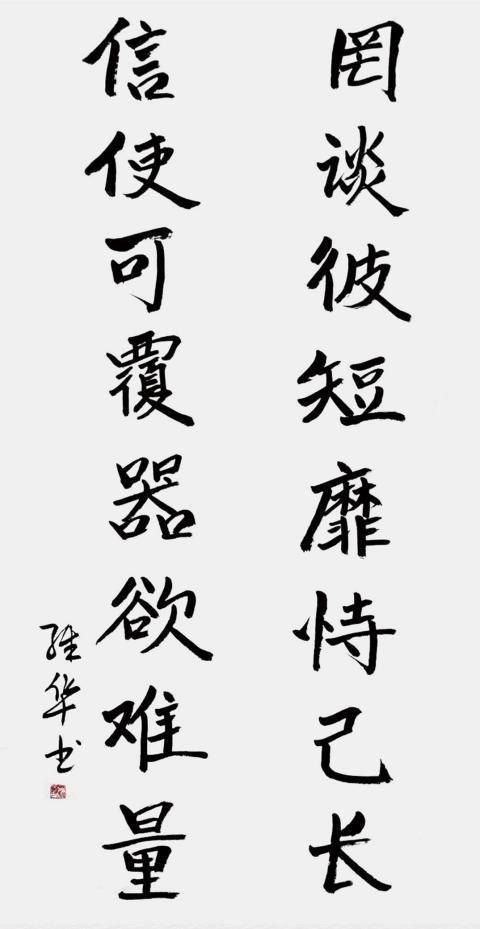 罔谈彼短靡恃己长
信使可覆器欲难量
维华书